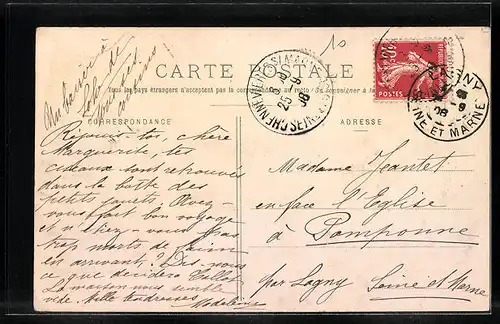 CARTE POSTALE
Tous les pays étrangers n'acceptent pas la correspondance au recto
CORRESPONDANCE
ADRESSE
CHENNEVIÈRES S/ MARNE
25 9 08
POSTES
10
LAGNY
SEINE ET MARNE
Réjouis-toi, chère
Marguerite, tes
ciseaux sont retrouvés
dans la boîte des
petits jouets. Avez-
vous fait bon voyage
et n'étiez-vous pas
trop morts de faim
en arrivant? Dis-nous
ce que décidera
La maison nous semble
vide. Mille tendresses
Madeleine
Madame Jeantet
en face l'Eglise
à Pomponne
par Lagny Seine et Marne